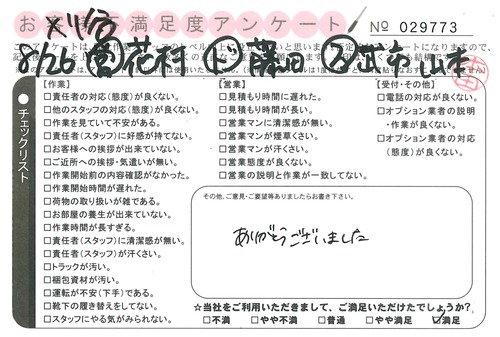 お客様不満足度アンケート
No 029773
刈谷
8/26 営 花村 ド 藤田 ② 武市 山本
チェックリスト
【作業】
□責任者の対応(態度)が良くない。
□他のスタッフの対応(態度)が良くない。
□作業を見ていて不安がある。
□責任者(スタッフ)に好感が持てない。
□お客様への挨拶が出来ていない。
□ご近所への挨拶・気遣いが無い。
□作業開始前の内容確認がなかった。
□作業開始時間が遅れた。
□荷物の取り扱いが雑である。
□お部屋の養生が出来ていない。
□作業時間が長すぎる。
□責任者(スタッフ)に清潔感が無い。
□責任者(スタッフ)が汗くさい。
□トラックが汚い。
□梱包資材が汚い。
□運転が不安(下手)である。
□靴下の履き替えをしてない。
□スタッフにやる気がみられない。
【営業】
□見積もり時間に遅れた。
□見積もり時間が長い。
□営業マンに清潔感が無い。
□営業マンが煙草くさい。
□営業マンが汗くさい。
□営業態度が良くない。
□営業の説明と作業が一致してない。
【受付・その他】
□電話の対応が良くない。
□オプション業者の説明
・作業が良くない。
□オプション業者の対応
(態度)が良くない。
その他、ご意見・ご要望等ありましたらお書き下さい。
ありがとうございました
☆当社をご利用いただきまして、ご満足いただけたでしょうか?
□不満 □やや不満 □普通 □やや満足 ☑満足